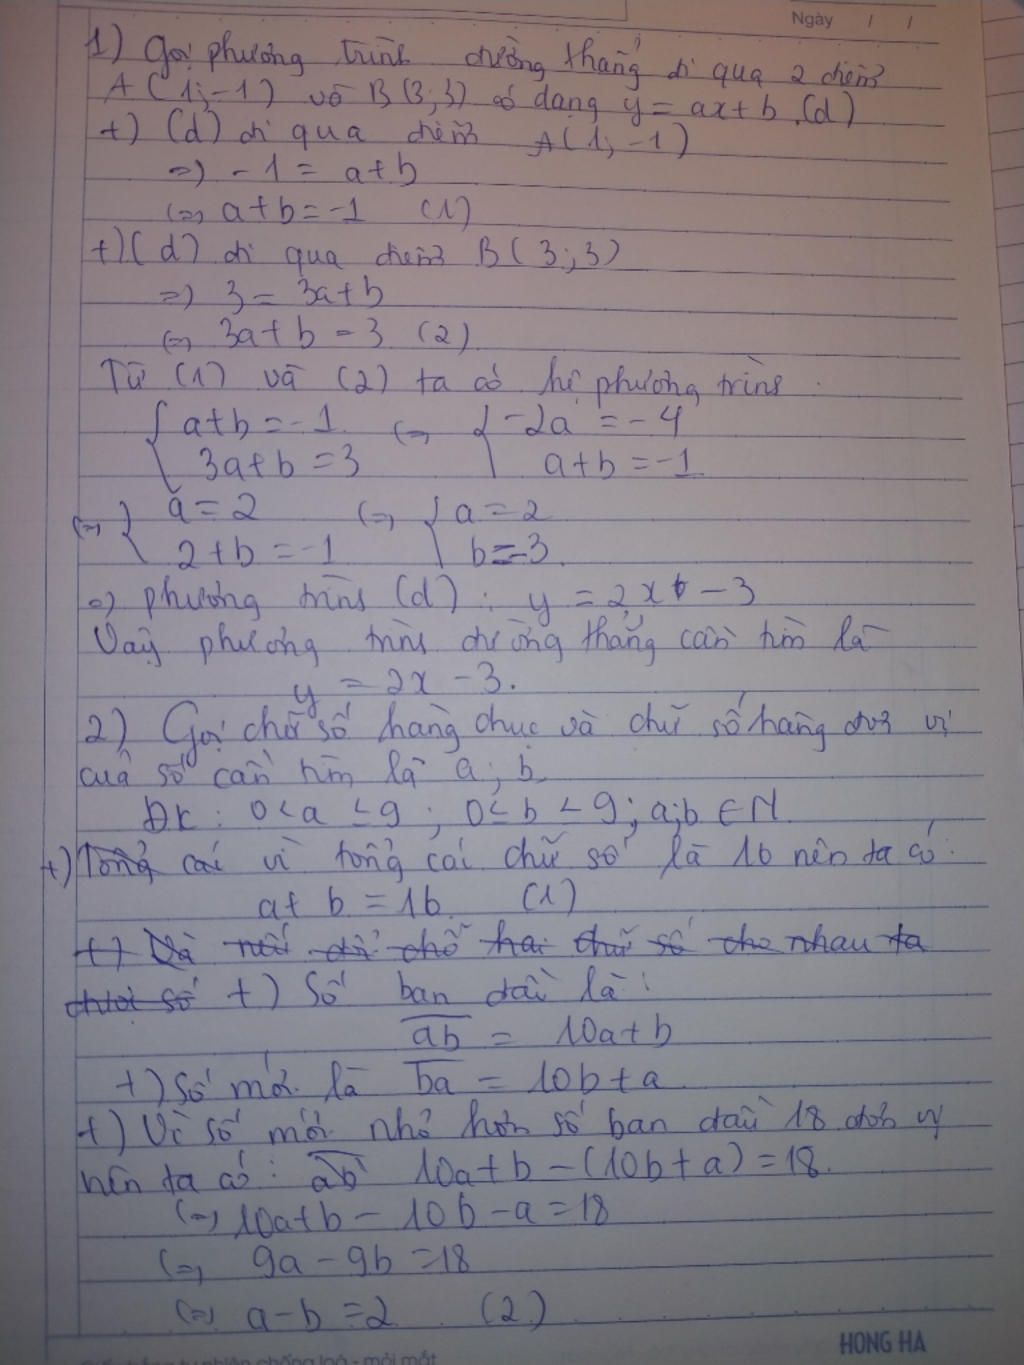 Ngày / /
1) Gọi phương trình đường thẳng đi qua 2 điểm
A(1;-1) và B(3;3) có dạng y = ax+b (d)
+) (d) đi qua điểm A(1;-1)
=> -1 = a+b
<=> a+b=-1 (1)
+) (d) đi qua điểm B(3;3)
=> 3 = 3a+b
<=> 3a+b = 3 (2)
Từ (1) và (2) ta có hệ phương trình
{ a+b=-1 <=> { -2a = -4
3a+b=3 a+b=-1
<=> { a=2 <=> { a=2
2+b=-1 b=-3
=> phương trình (d): y = 2x - 3
Vậy phương trình đường thẳng cần tìm là
y = 2x - 3.
2) Gọi chữ số hàng chục và chữ số hàng đơn vị
của số cần tìm là a; b
ĐK: 0<a≤9; 0≤b≤9; a;b ∈ N
+) Tổng các vì tổng các chữ số là 16 nên ta có:
a+b=16 (1)
+) Và nếu đổi chỗ hai chữ số cho nhau ta
được số +) Số ban đầu là:
ab = 10a+b
+) Số mới là ba = 10b+a
+) Vì số mới nhỏ hơn số ban đầu 18 đơn vị
nên ta có: ab 10a+b-(10b+a)=18.
<=> 10a+b-10b-a=18
<=> 9a-9b=18
<=> a-b=2 (2)
HONG HA
chống loá - mỏi mắt